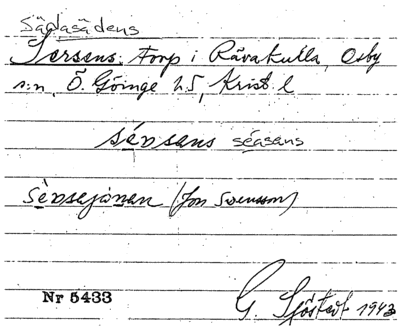 Sersens: torp i Råvakulla, Osby
s:n, Ö. Göinge hd, Krist. l
sévsens séasens
Sèvsejònen (Jon Svensson)
Nr 5433 G. Sjöstedt 1943